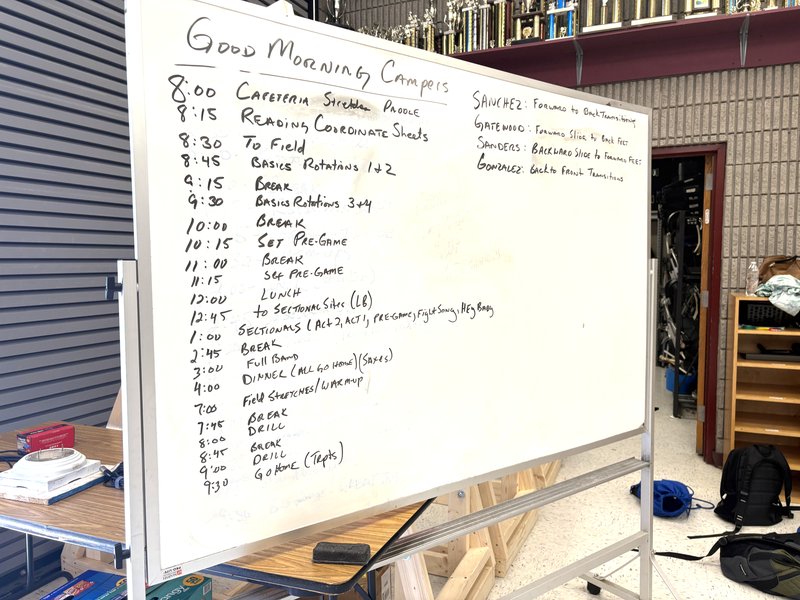 Good Morning Campers
8:00 Cafeteria Stretches Paddle
8:15 Reading Coordinate Sheets
8:30 To Field
8:45 Basics Rotations 1+2
9:15 Break
9:30 Basics Rotations 3+4
10:00 Break
10:15 Set Pre-Game
11:00 Break
11:15 Set Pre-Game
12:00 Lunch
12:45 to Sectional Sites (LB)
1:00 Sectionals (Act 2, Act 1, Pre-Game, Fight Song, Hey Baby
2:45 Break
3:00 Full Band
4:00 Dinner (All Go Home) (Saxes)
7:00 Field Stretches/Warm-up
7:45 Break
8:00 Drill
8:45 Break
9:00 Drill
9:30 Go Home (Trpts)
Sanchez: Forward to Back Transitioning
Gatewood: Forward Slide to Back Feet
Sanders: Backward Slide to Forward Feet
Gonzalez: Back to Front Transitions